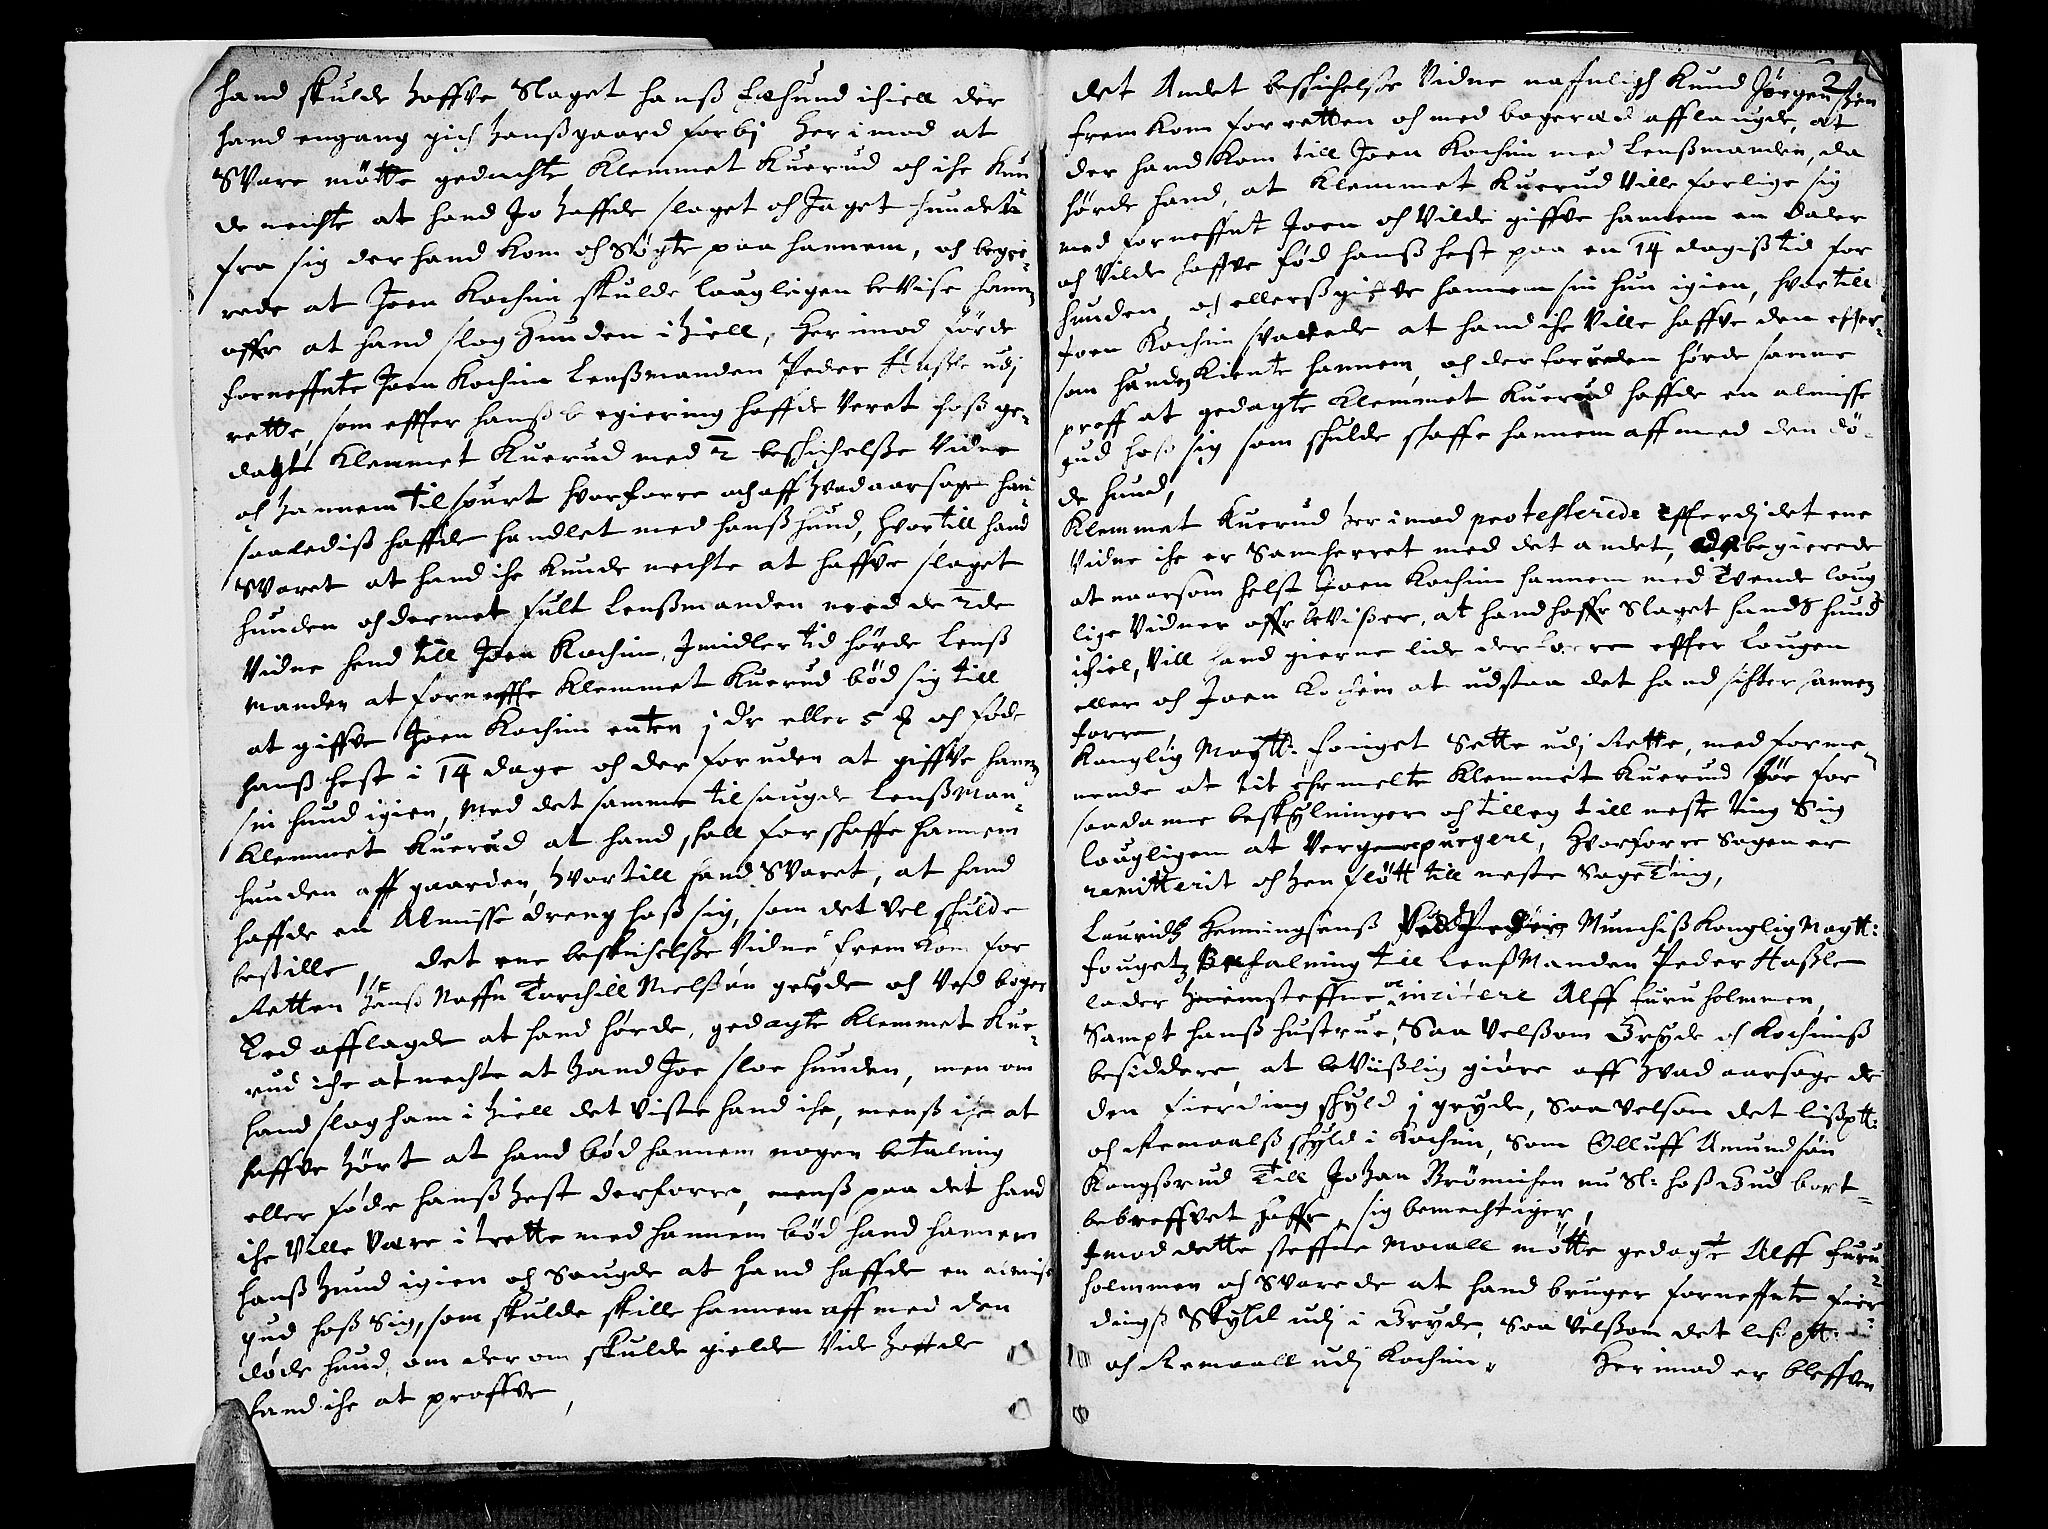 hand skulde haffve Slaget hanß Lehund ihiell der
hand engang gich hanßgaard forbj Her imod at
SVare mötte gedachte Klemmet Kuerud och ihe Kun
de nechte at hand Jo haffde slaget och Jaget hundet
fra sig der hand kom och Söyte paa hannem, och begie-
rede at Joen Kochim skulde lougligen beVise hannem
offr at hand slog Hunden ihiell, Her imod förde
forneffnte Joen Kochim Lenßmanden Peder Haßle udj
rette, som effter hanß begiering haffde Veret hoß ge-
dagte Klemmet Kuerud med 2 beschichelße Vidne
och hannem tilspurt hvorforre och aff hvad aarsage hand
saaledis haffde handlet med hanß hund, Hvortill hand
SVaret at hand ihe kunde nechte at haffve slaget
hunden och dermet fult Lenßmanden med de 2de
Vidne hend till Joen Kochim, Jmidlertid hörde Lenß
manden at forneffte Klemmet Kuerud böd sig till
at giffve Joen Kochim enten j dr eller 5 ß och föde
hanß hest i 14 dage och der foruden at giffve hannem
sin hund igien, Med det samme tilsaugde LenßMan-
Klemmet Kuerud at hand skall forschaffe hannem
hunden aff gaarden, hvortill hand SVaret, at hand
haffde en Almisse dreng hoß sig, som det vel skulde
bestille, det ene beskichelße Vidne fremkom for
Retten hanß Naffn Torchill Nielßön gryde och Ved boger
Eed afflagde at hand hörde, gedagte Klemmet Kue-
rud ihe at nechte at hand Joe sloe hunden, men om
hand slog ham i hiell det Viste hand ihe, menß ihe at
haffve hört at hand böd hannem nogen betalning
eller föde hanß hest derforre, menß paa det hand
ihe Ville Være i trette med hannem böd hand hannem
hanß hund igien och Saugde at hand haffde en almiß
gud hoß Sig, som skulde skille hannem aff med den
döde hund, om der om skulde gielde Vide hafde
hand ihe at proffve,
2
det Andet beschichelße Vidne naffnligh Knud Jörgenßen
fremkom for retten och med bogeræd afflaugde, at
der hand kom till Joen Kochim med Lenßmanden, da
hörde hand, at Klemmet Kuerud Ville forlige sig
med forneffnt Joen och Vilde giffve hannem en Daler
och Vilde haffve föd hanß hest paa en 14 dagiß tid for
hunden, och ellerß giffve hannem sin hun igien, hvortill
Joen Kochim svarede at hand ihe Ville haffve den effter-
som hunden kiente hannem, och der foruden hörde samme
proff at gedagte Klemmet Kuerud haffde en almisse
gud hoß sig som skulde skaffe hannem aff med den dö-
de hund,
Klemmet Kuerud her imod protesterede effterdj det ene
Vidne ihe er Samherret med det andet, och begierede
at naarsom helst Joen Kochim hannem med tvende loug
lige Vidner offr beVißer, at hand haffr Slaget hands hund
ihiel, Vill hand gierne lide derforre effter Lougen
eller och Joen Kochim at udstaa det hand sichter hannem
forre,
Konglig Maytt: fouget Sette udj Rette, med forme-
nende at tit ehrmelte Klemmet Kuerud bör for
saadanne beskylninger och tilleg till neste ting Sig
lougligen at Verge purgere, Hvorforre Sagen er
remitterit och hen flött till neste Sage Ting,
Lauridtz Henningsenß Munchiß Konglig Maytt:
fougetz Befalning till LenßManden Peder Haßle
lader heimsteffne och incitere Alff furuholmmen,
Sampt hanß hustrue, Saa Velßom Gryde och Kochimß
besiddere, at beVißlig giöre aff hvad aarsage de
den fierding skyld j gryde, Saa velsom det lißptt:
och Remaalß skyld i Kochim, Som Olluff Amundsön
Kongßrud Till Johan Brönnichen nu Sl: hoß Gud bort-
bebreffvet haffr, sig bemechtiger,
Jmod dette steffne maall mötte gedagte Alff furu
holmmen och SVarede at hand bruger forneffnte fier-
dingß Skyld udj i Gryde, Saa Velßom det lißptt:
och Remaall udj Kochim, Her imod er bleffven